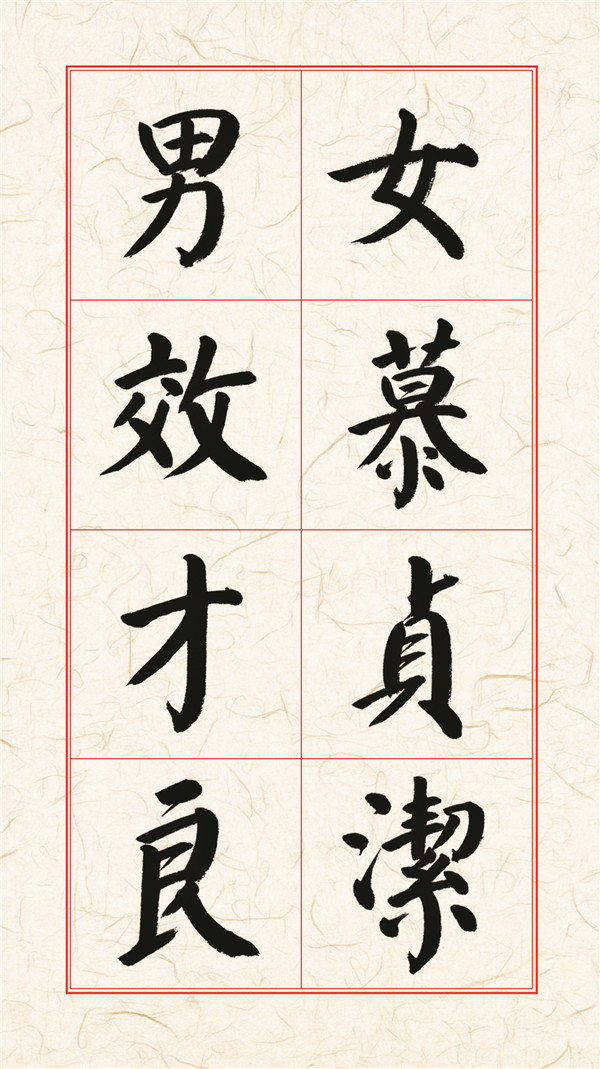 女慕貞潔
男效才良